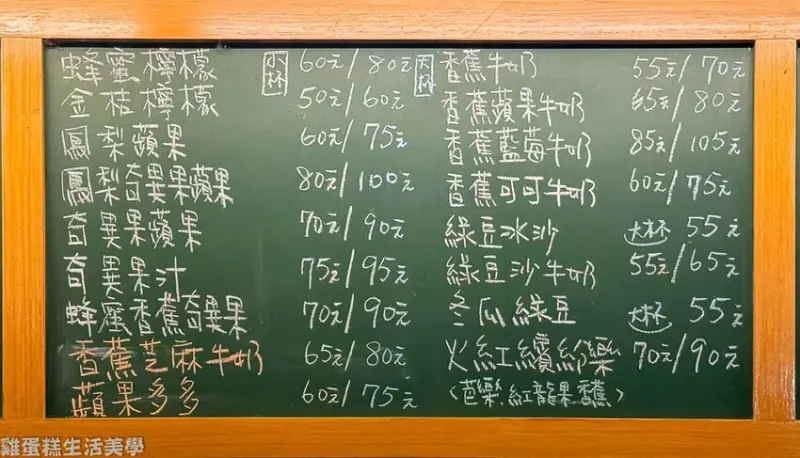 蜂蜜檸檬 小杯 60元/80元 大杯
金桔檸檬 50元/60元
鳳梨蘋果 60元/75元
鳳梨奇異果蘋果 80元/100元
奇異果蘋果 70元/90元
奇異果汁 75元/95元
蜂蜜香蕉奇異果 70元/90元
香蕉芝麻牛奶 65元/80元
蘋果多多 60元/75元
香蕉牛奶 55元/70元
香蕉蘋果牛奶 65元/80元
香蕉藍莓牛奶 85元/105元
香蕉可可牛奶 60元/75元
綠豆冰沙 大杯 55元
綠豆沙牛奶 55元/65元
冬瓜綠豆 大杯 55元
火紅繽紛樂 70元/90元
(芭樂、紅龍果、香蕉)
雞蛋糕生活美學